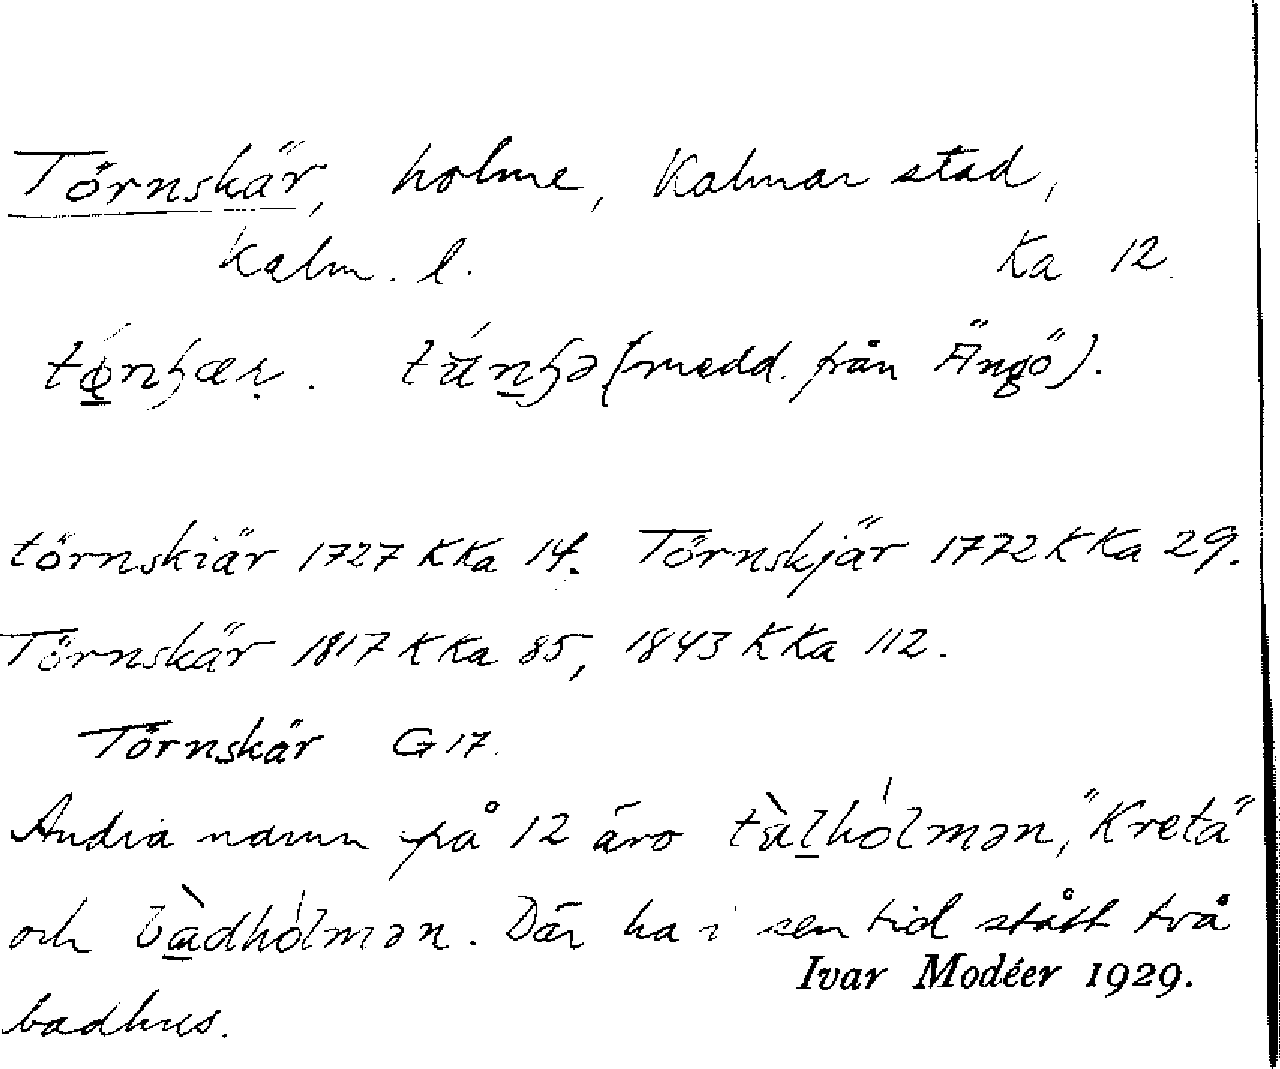 Törnskär, holme, Kalmar stad,
Kalm. l. Ka 12.
(medd. från Ängö).
törnskiär 1727 KKa 14. Törnskjär 1772 KKa 29.
Törnskär 1817 KKa 85, 1843 KKa 112.
Törnskär G 17.
Andra namn på 12 äro tàlhólmən, "Kreta"
och bàdhólmən. Där ha i sen tid stått två
Ivar Modéer 1929.
badhus.